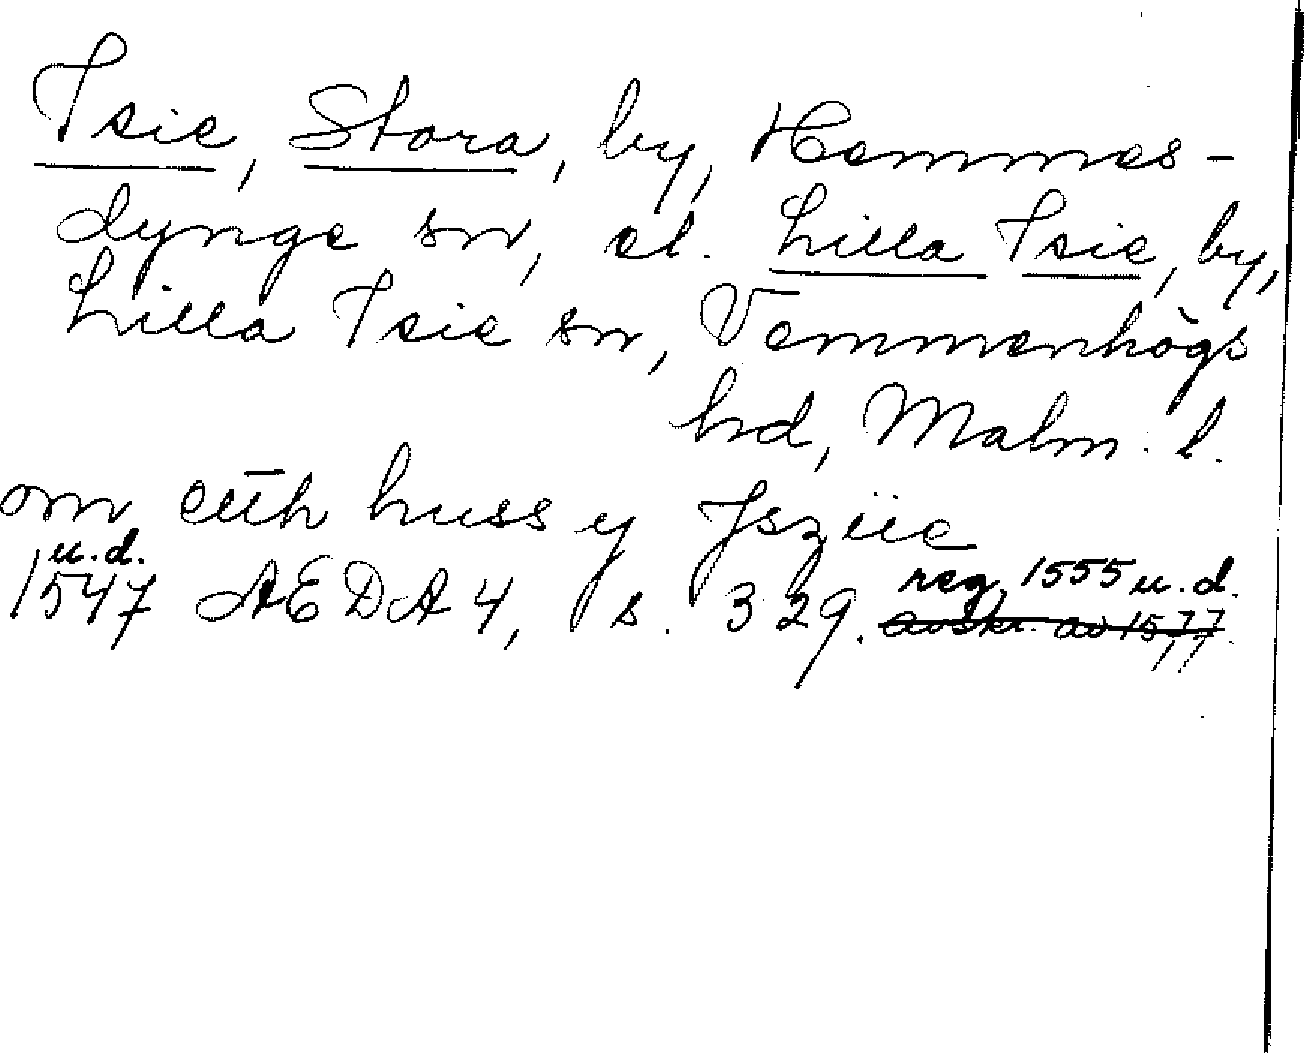 Isie, Stora, by, Hemmes-
dynge sn, el. Lilla Isie, by,
Lilla Isie sn, Vemmenhögs
hd, Malm. l.
om etth huss y Jsziie
u.d.
1547 AEDA 4, s. 329. reg, 1555 u.d.
avskr. av 1577.